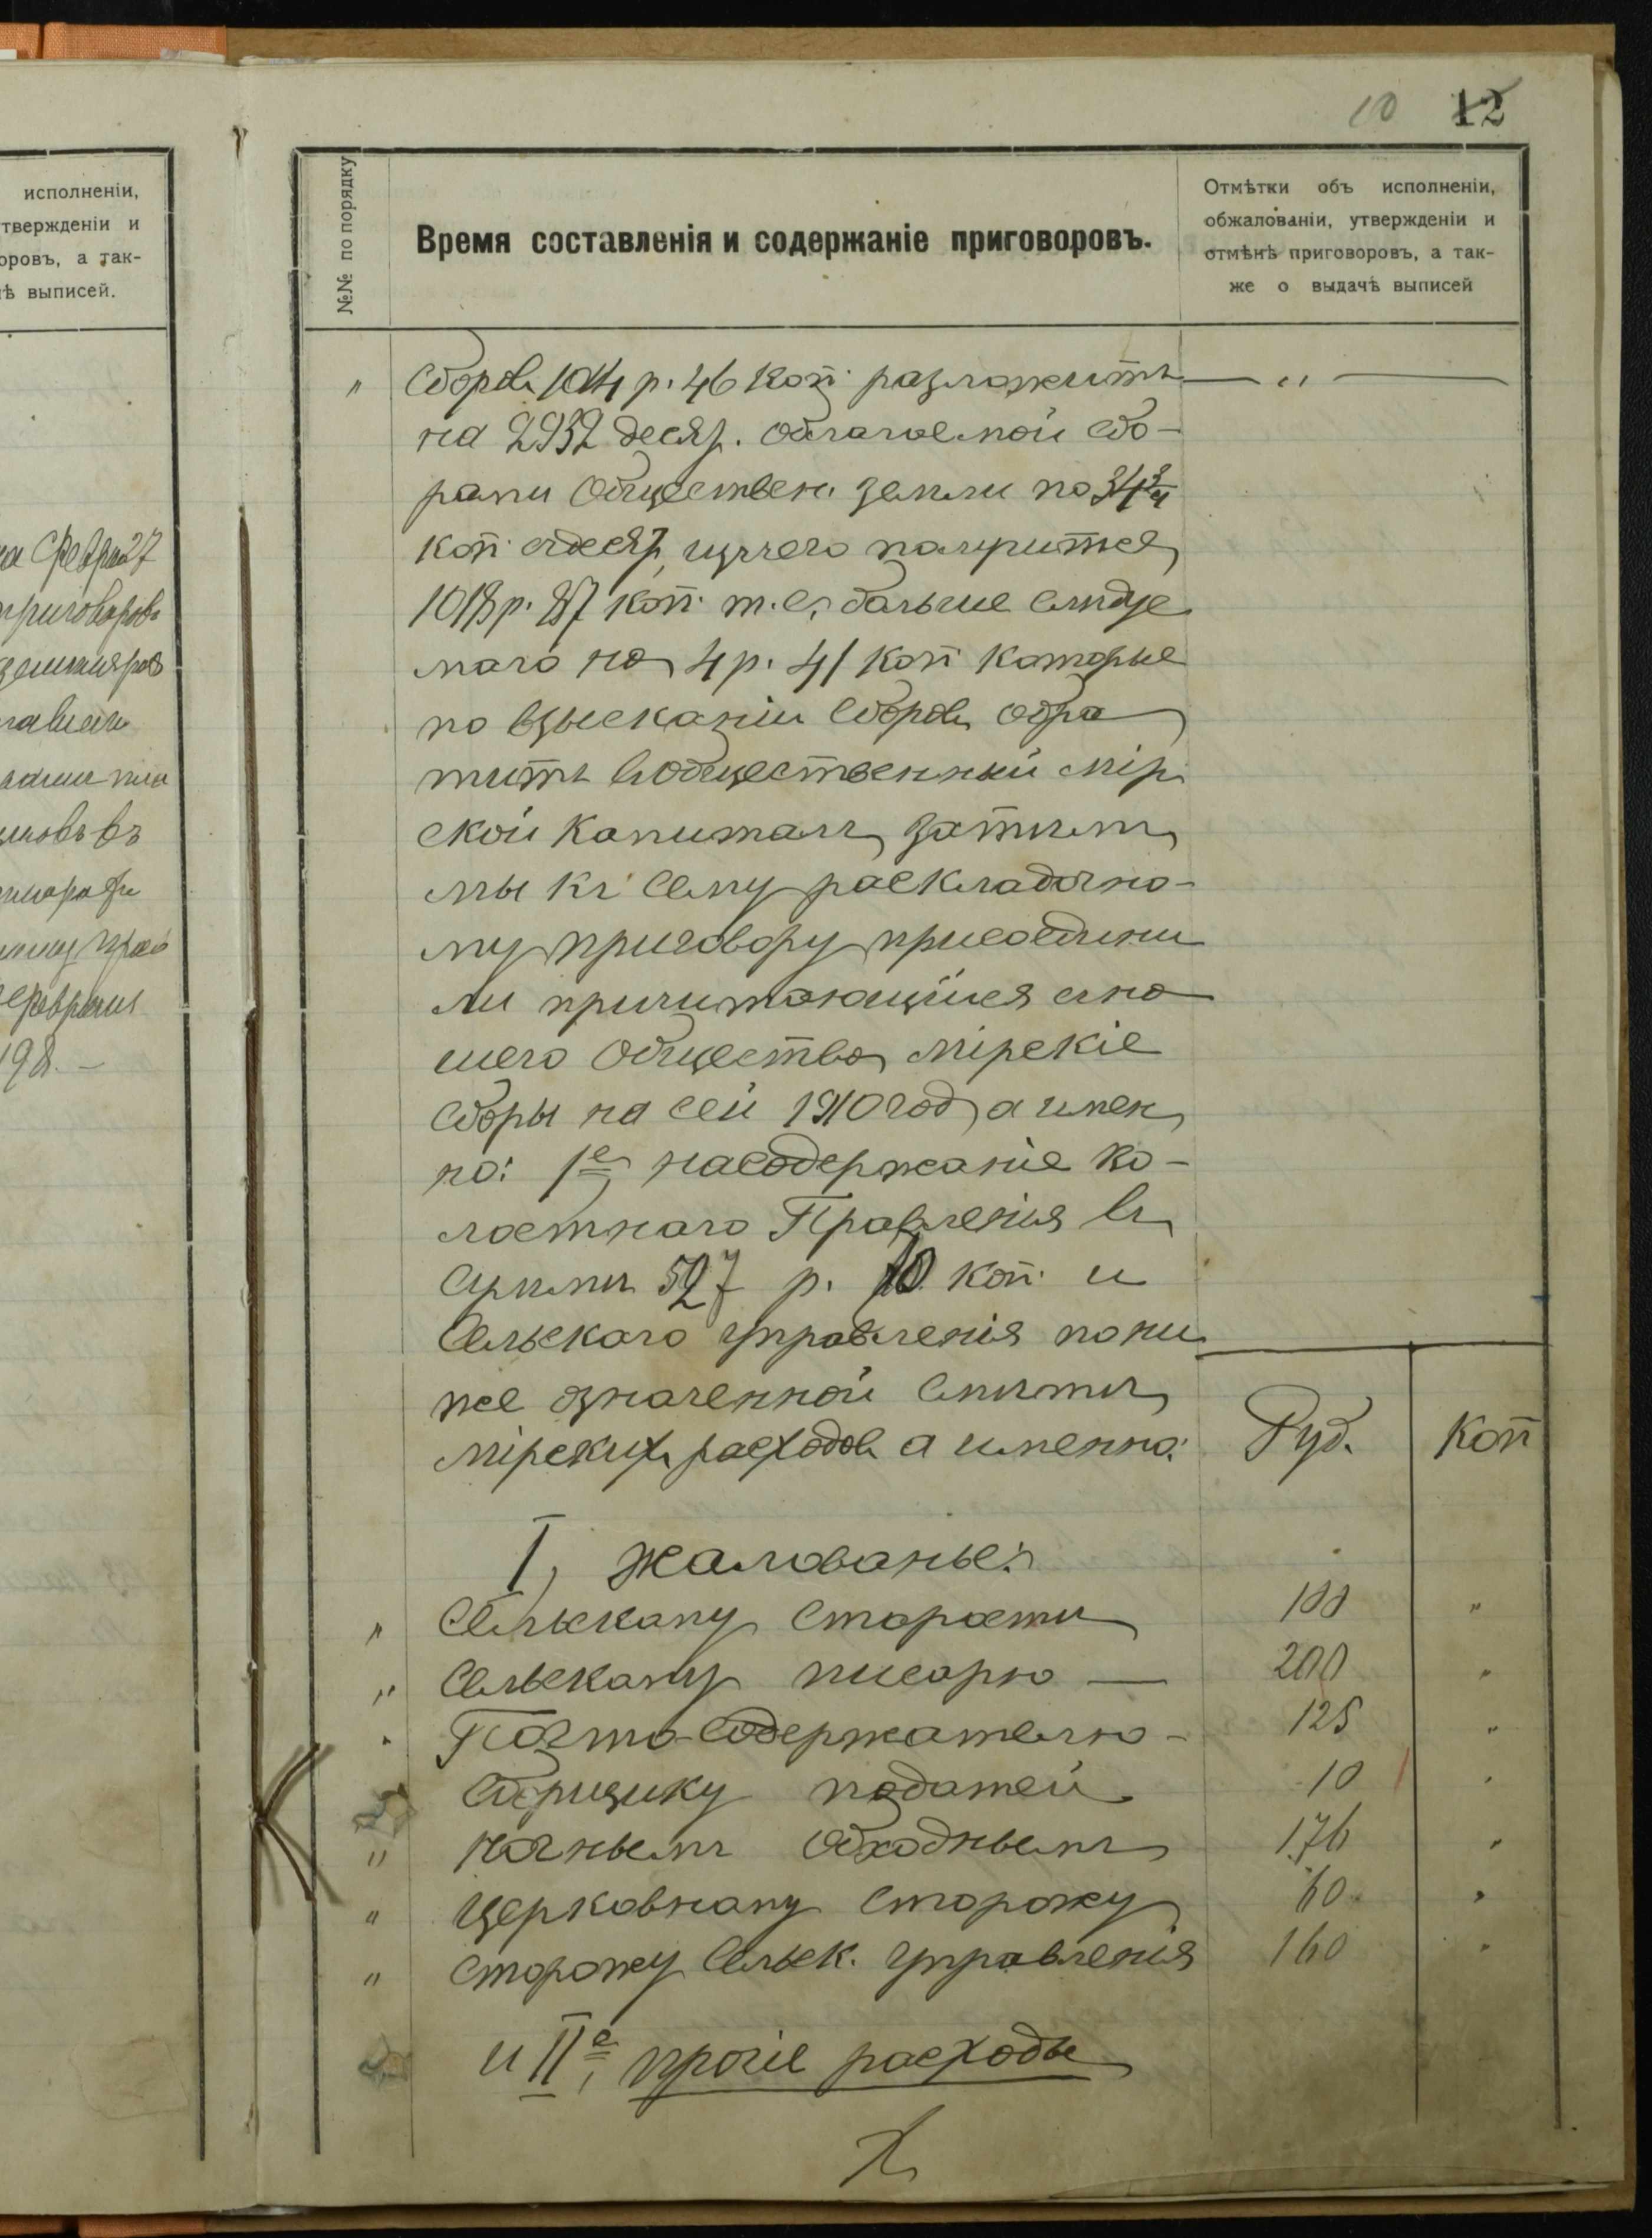 10 12
исполненіи,
твержденіи и
оровъ, а так-
ѣ выписей.
приговоровъ
198. —
№№ по порядку
Время составленія и содержаніе приговоровъ.
Отмѣтки объ исполненіи,
обжалованіи, утвержденіи и
отмѣнѣ приговоровъ, а так-
же о выдачѣ выписей
" Сборовъ 1014 р. 46 коп. разложить — " —
на 2932 десят. облагаемой сбо-
рами Обществен. земли по 34 3/4
коп. съ десят, изъ чего получится
1018 р. 87 коп. т. е. больше слѣдуе
маго на 4 р. 41 коп которые
по взысканіи сборовъ обра
тить въ общественный мір
ской капиталъ, затѣмъ
мы къ сему раскладочно-
му приговору присоедини
ли причитающіеся съ на
шего Общества мірскіе
сборы на сей 1910 год, а имен
но: 1е, на содержаніе Во-
лостнаго Правленія въ
суммѣ 527 р. 10 коп. и
Сельскаго управленія пони
же означенной смѣтѣ
мірскихъ расходовъ а именно:
Руб. Коп
I, жалованье:
" Сельскому Старостѣ 100 "
" Сельскому писарю — 200 "
" Почто-Содержателю - 125 "
Сборщику податей 10 "
" ночнымъ обходнымъ 176 "
" Церковному сторожу 60 "
" Сторожу Сельск. управленія 160 "
и IIе, прочіе расходы